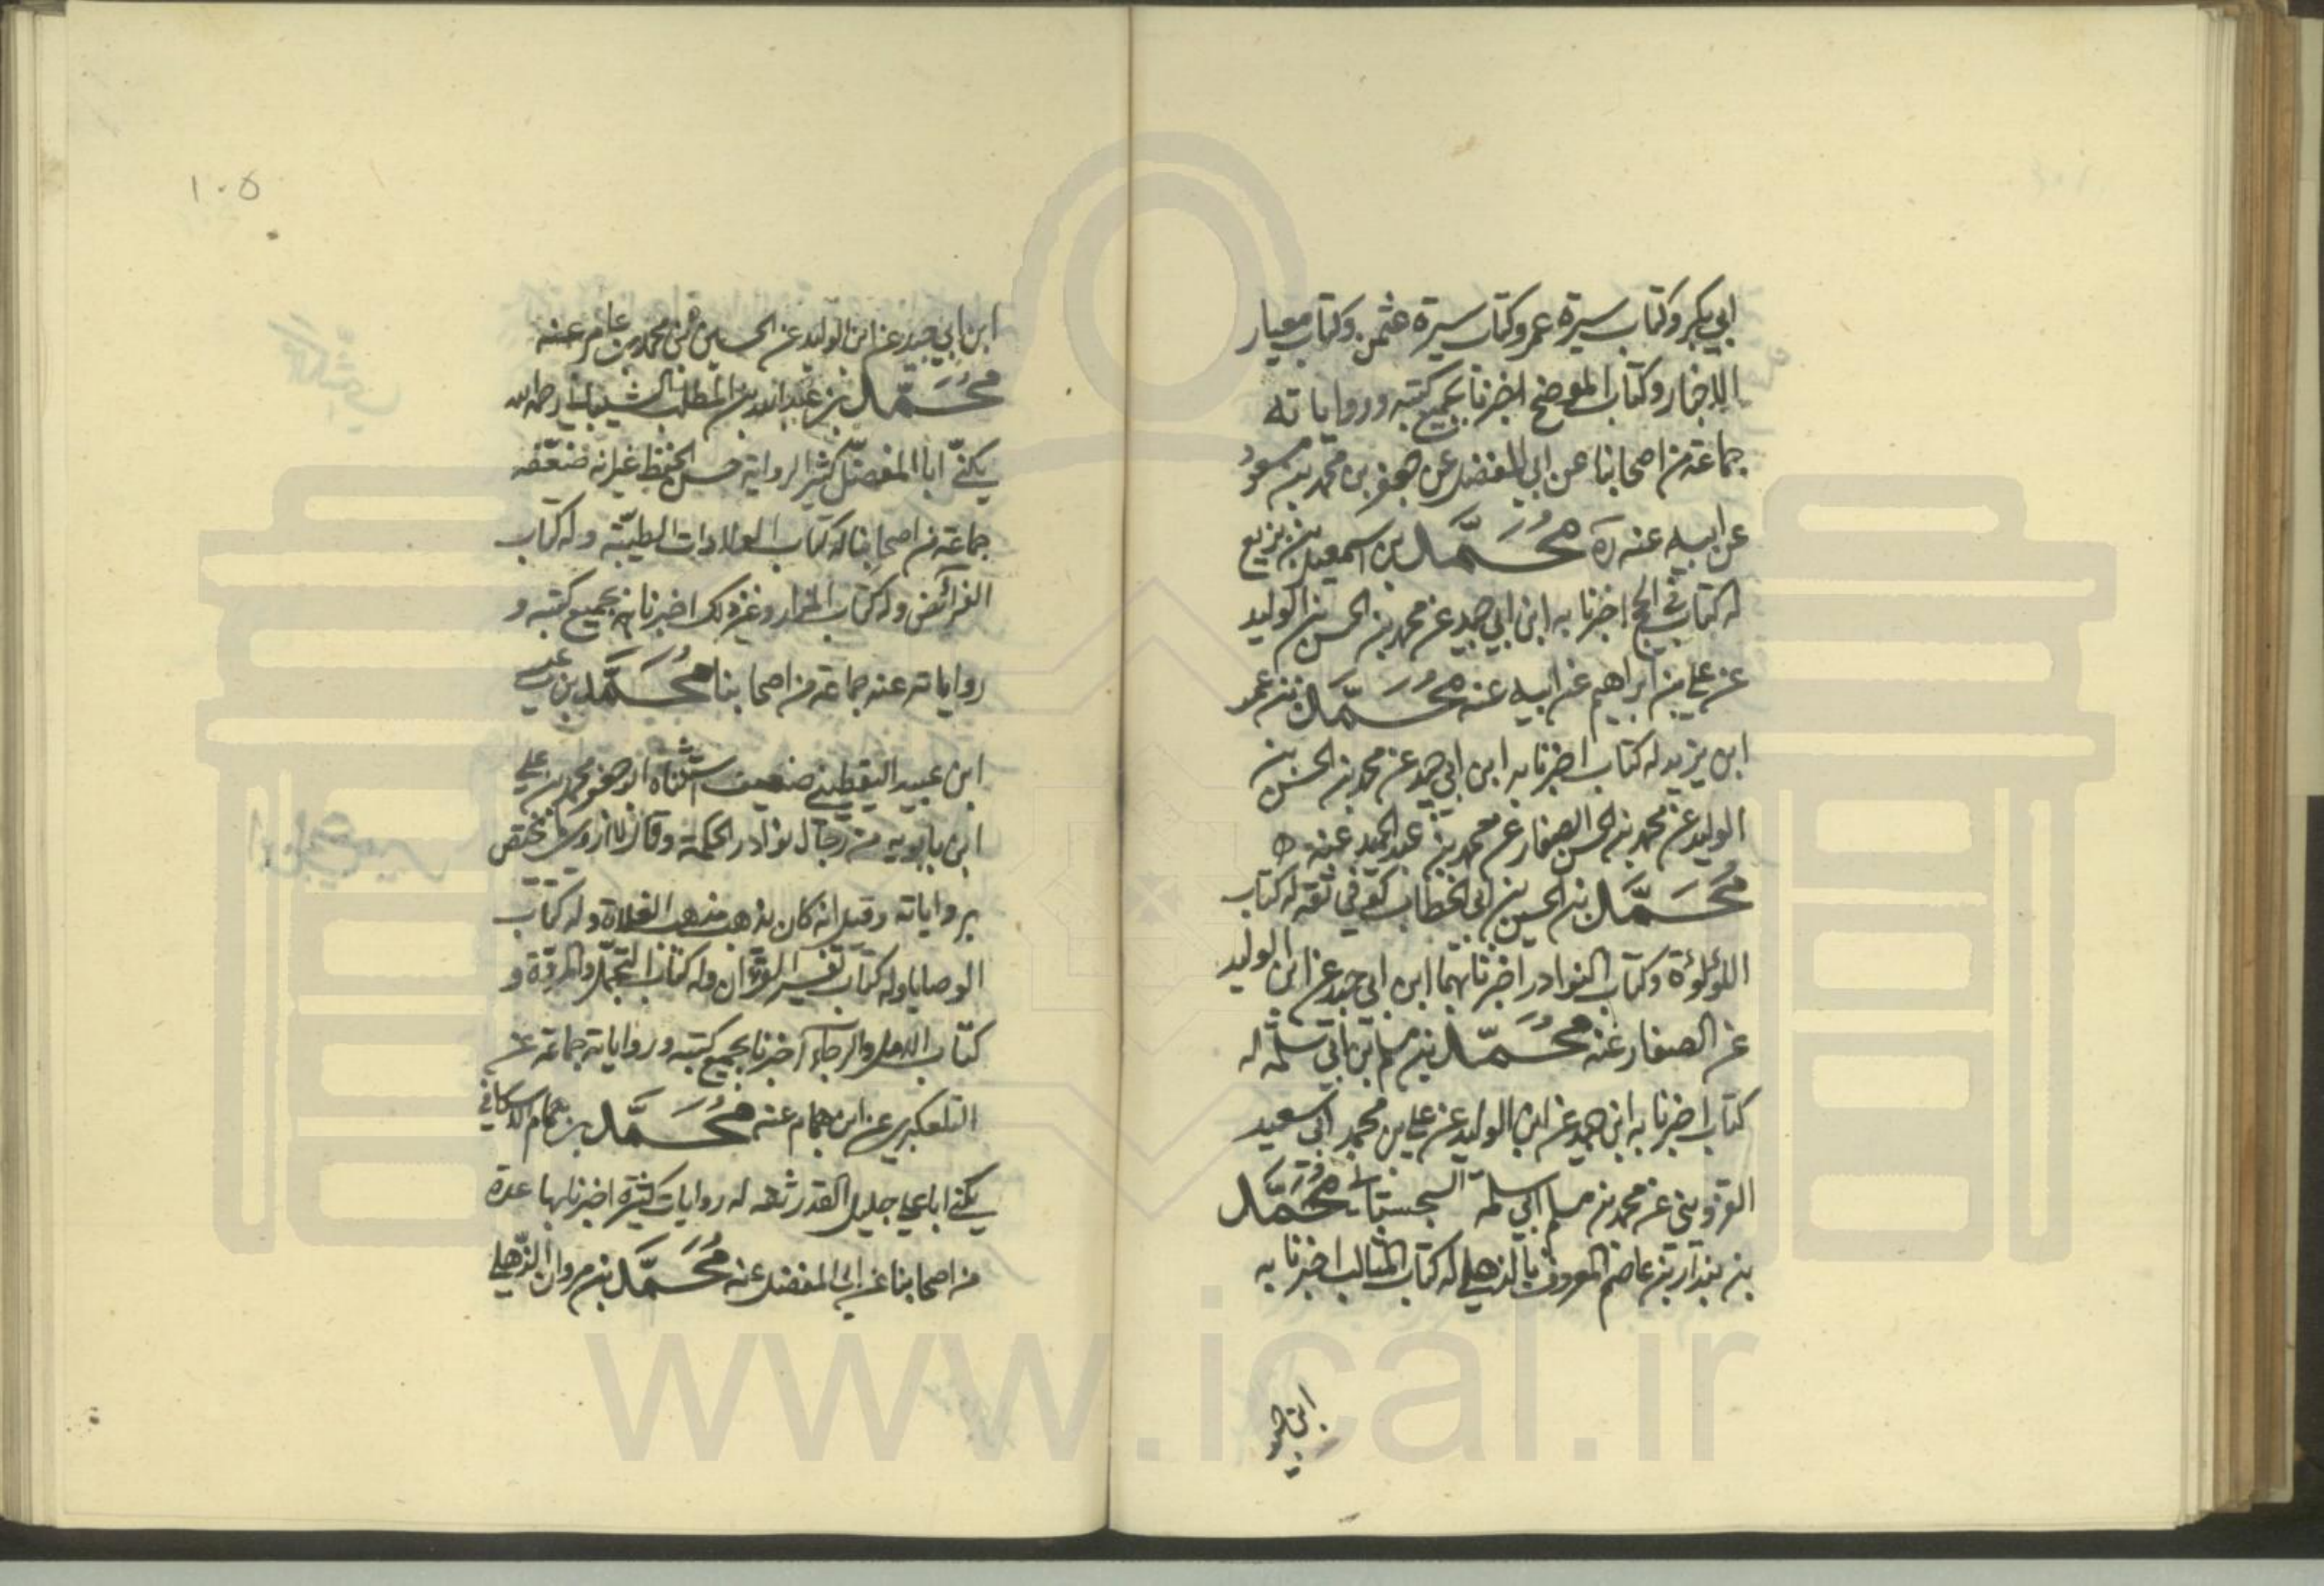 ابي بكر وكتاب سيرة عمر وكتاب سيرة عثمن وكتاب معيار
الاخبار وكتاب الموضح اخبرنا بجميع كتبه ورواياته
جماعة من اصحابنا عن ابي المفضل عن جعفر بن محمد بن مسعود
عن ابيه عنه ره محمد بن اسمعيل بن بزيع
له كتاب في الحج اخبرنا به ابن ابي جيد عن محمد بن الحسن بن الوليد
عن علي بن ابراهيم عن ابيه عنه محمد بن عمر
ابن يزيد له كتاب اخبرنا به ابن ابي جيد عن محمد بن الحسن بن
الوليد عن محمد بن الحسن الصفار عن محمد بن عبد الحميد عنه
محمد بن الحسين بن ابي الخطاب كوفي ثقة له كتاب
اللؤلؤة وكتاب النوادر اخبرنا بهما ابن ابي جيد عن ابن الوليد
عن الصفار عنه محمد بن مسلم ابي سلمة له
كتاب اخبرنا به ابن جيد عن ابن الوليد عن علي بن محمد ابي سعيد
القزويني عن محمد بن مسلم ابي سلمة السجستاني محمد
بن بندار بن عاصم المعروف بالذهلي له كتاب المثالب اخبرنا به
ابن جيد
١٠٥
ابن ابي جيد عن ابن الوليد عن الحسين بن محمد بن عامر عنه
محمد بن عبد الله بن المطلب الشيباني رحمه الله
يكنى ابا المفضل كثير الرواية حسن الحفظ غير انه ضعفه
جماعة من اصحابنا له كتاب الولادات الطيبة وله كتاب
الفرائض وله كتاب المزار وغير ذلك اخبرنا به بجميع كتبه و
رواياته عنه جماعة من اصحابنا محمد بن عيسى
ابن عبيد اليقطيني ضعيف استثناه ابو جعفر محمد بن علي
ابن بابويه من رجال نوادر الحكمة وقال لا اروي ما يختص
برواياته وقيل انه كان يذهب مذهب الغلاة وله كتاب
الوصايا وله كتاب تفسير القرآن وله كتاب التجمل والمروة و
كتاب الامل والرجاء اخبرنا بجميع كتبه ورواياته جماعة عن
التلعكبري عن ابن همام عنه محمد بن همام الاسكافي
يكنى ابا علي جليل القدر ثقه له روايات كثيرة اخبرنا بها عدة
من اصحابنا عن ابي المفضل عنه محمد بن مروان الذهلي